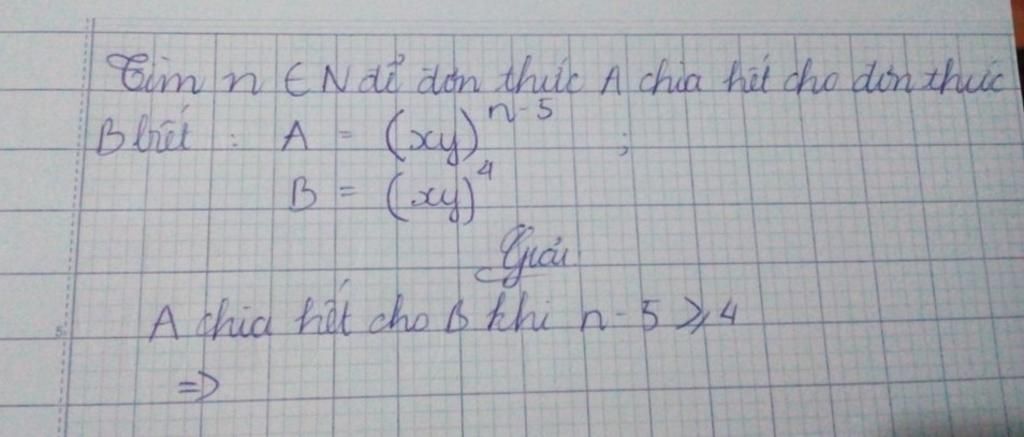 Tìm n ∈ N để đơn thức A chia hết cho đơn thức
B biết : A = (xy)^{n-5} ;
B = (xy)^4
Giải
A chia hết cho B khi n - 5 ≥ 4
=>